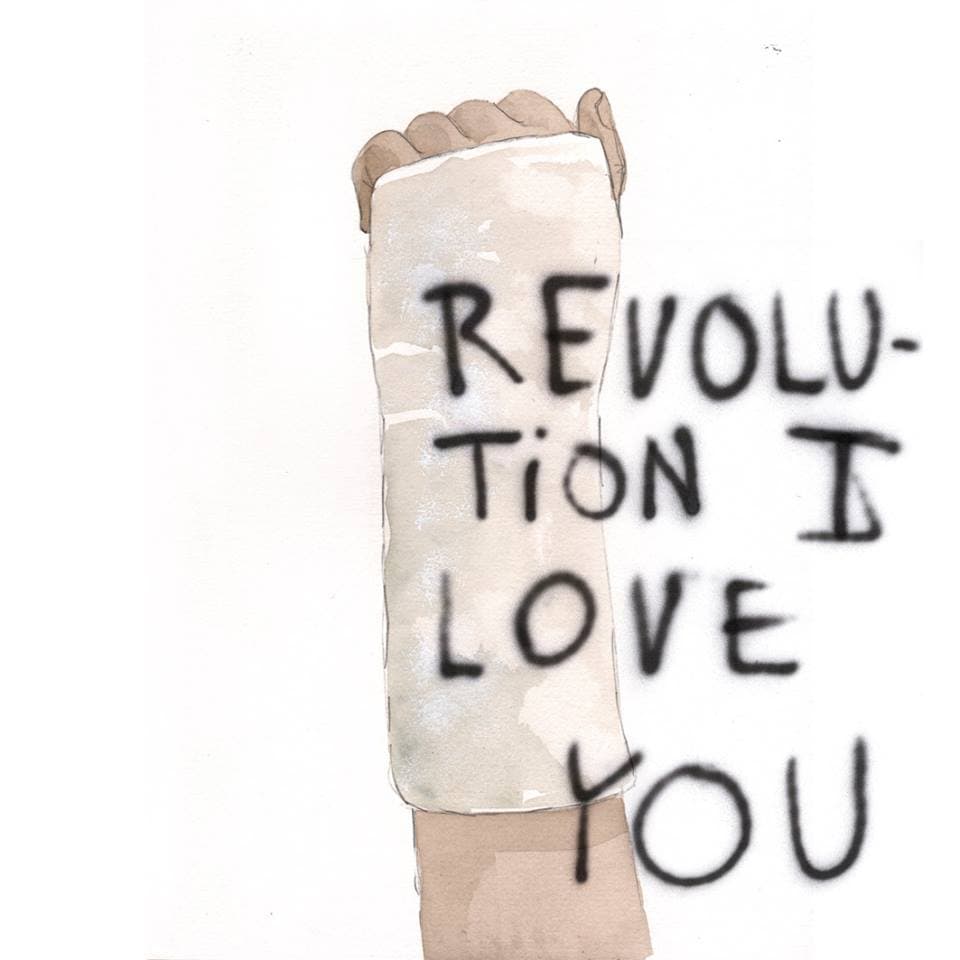 REVOLU-
TiON I
LOVE
YOU